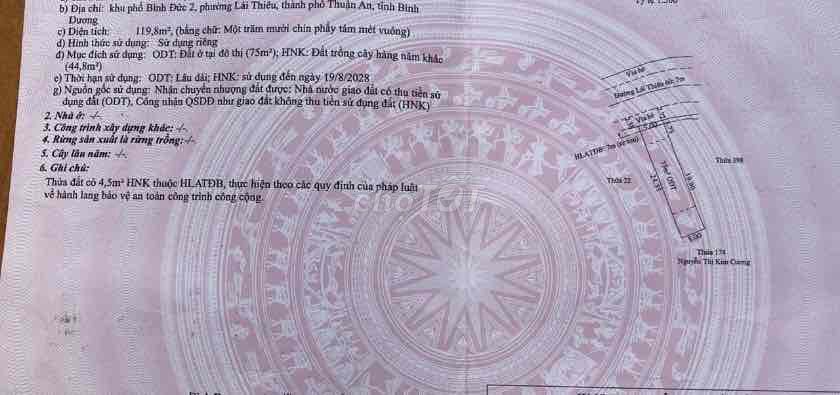 b) Địa chỉ: khu phố Bình Đức 2, phường Lái Thiêu, thành phố Thuận An, tỉnh Bình
Dương
c) Diện tích: 119,8m², (bằng chữ: Một trăm mười chín phẩy tám mét vuông)
d) Hình thức sử dụng: Sử dụng riêng
đ) Mục đích sử dụng: ODT: Đất ở tại đô thị (75m²); HNK: Đất trồng cây hàng năm khác
(44,8m²)
e) Thời hạn sử dụng: ODT: Lâu dài; HNK: sử dụng đến ngày 19/8/2028
g) Nguồn gốc sử dụng: Nhận chuyển nhượng đất được: Nhà nước giao đất có thu tiền sử
dụng đất (ODT), Công nhận QSDĐ như giao đất không thu tiền sử dụng đất (HNK)
2. Nhà ở: -/-
3. Công trình xây dựng khác: -/-
4. Rừng sản xuất là rừng trồng: -/-
5. Cây lâu năm: -/-
6. Ghi chú:
Thửa đất có 4,5m² HNK thuộc HLATĐB, thực hiện theo các quy định của pháp luật
về hành lang bảo vệ an toàn công trình công cộng.
chợTỐT
Vỉa hè
Đường Lái Thiêu
Vỉa hè
5.00
HLATĐB: 7m
Thửa 398
Thửa 22
24.91
ODT
19.90
5.00
Thửa 174
Nguyễn Thị Kim Cương